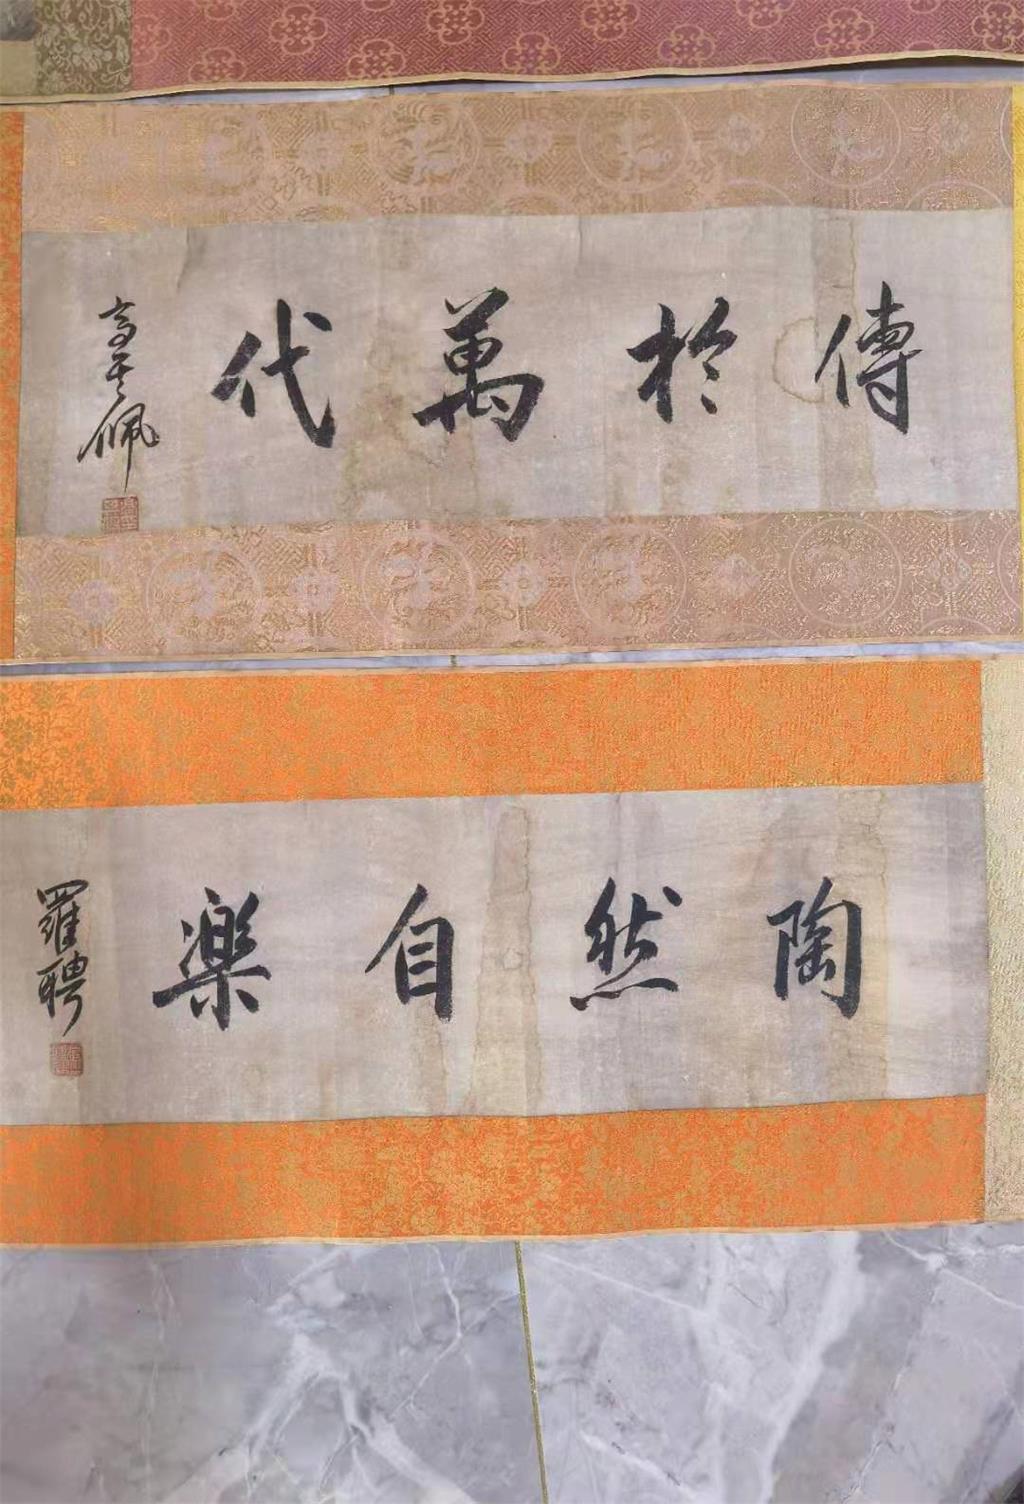 傳於萬代
高其佩
陶然自樂
羅聘